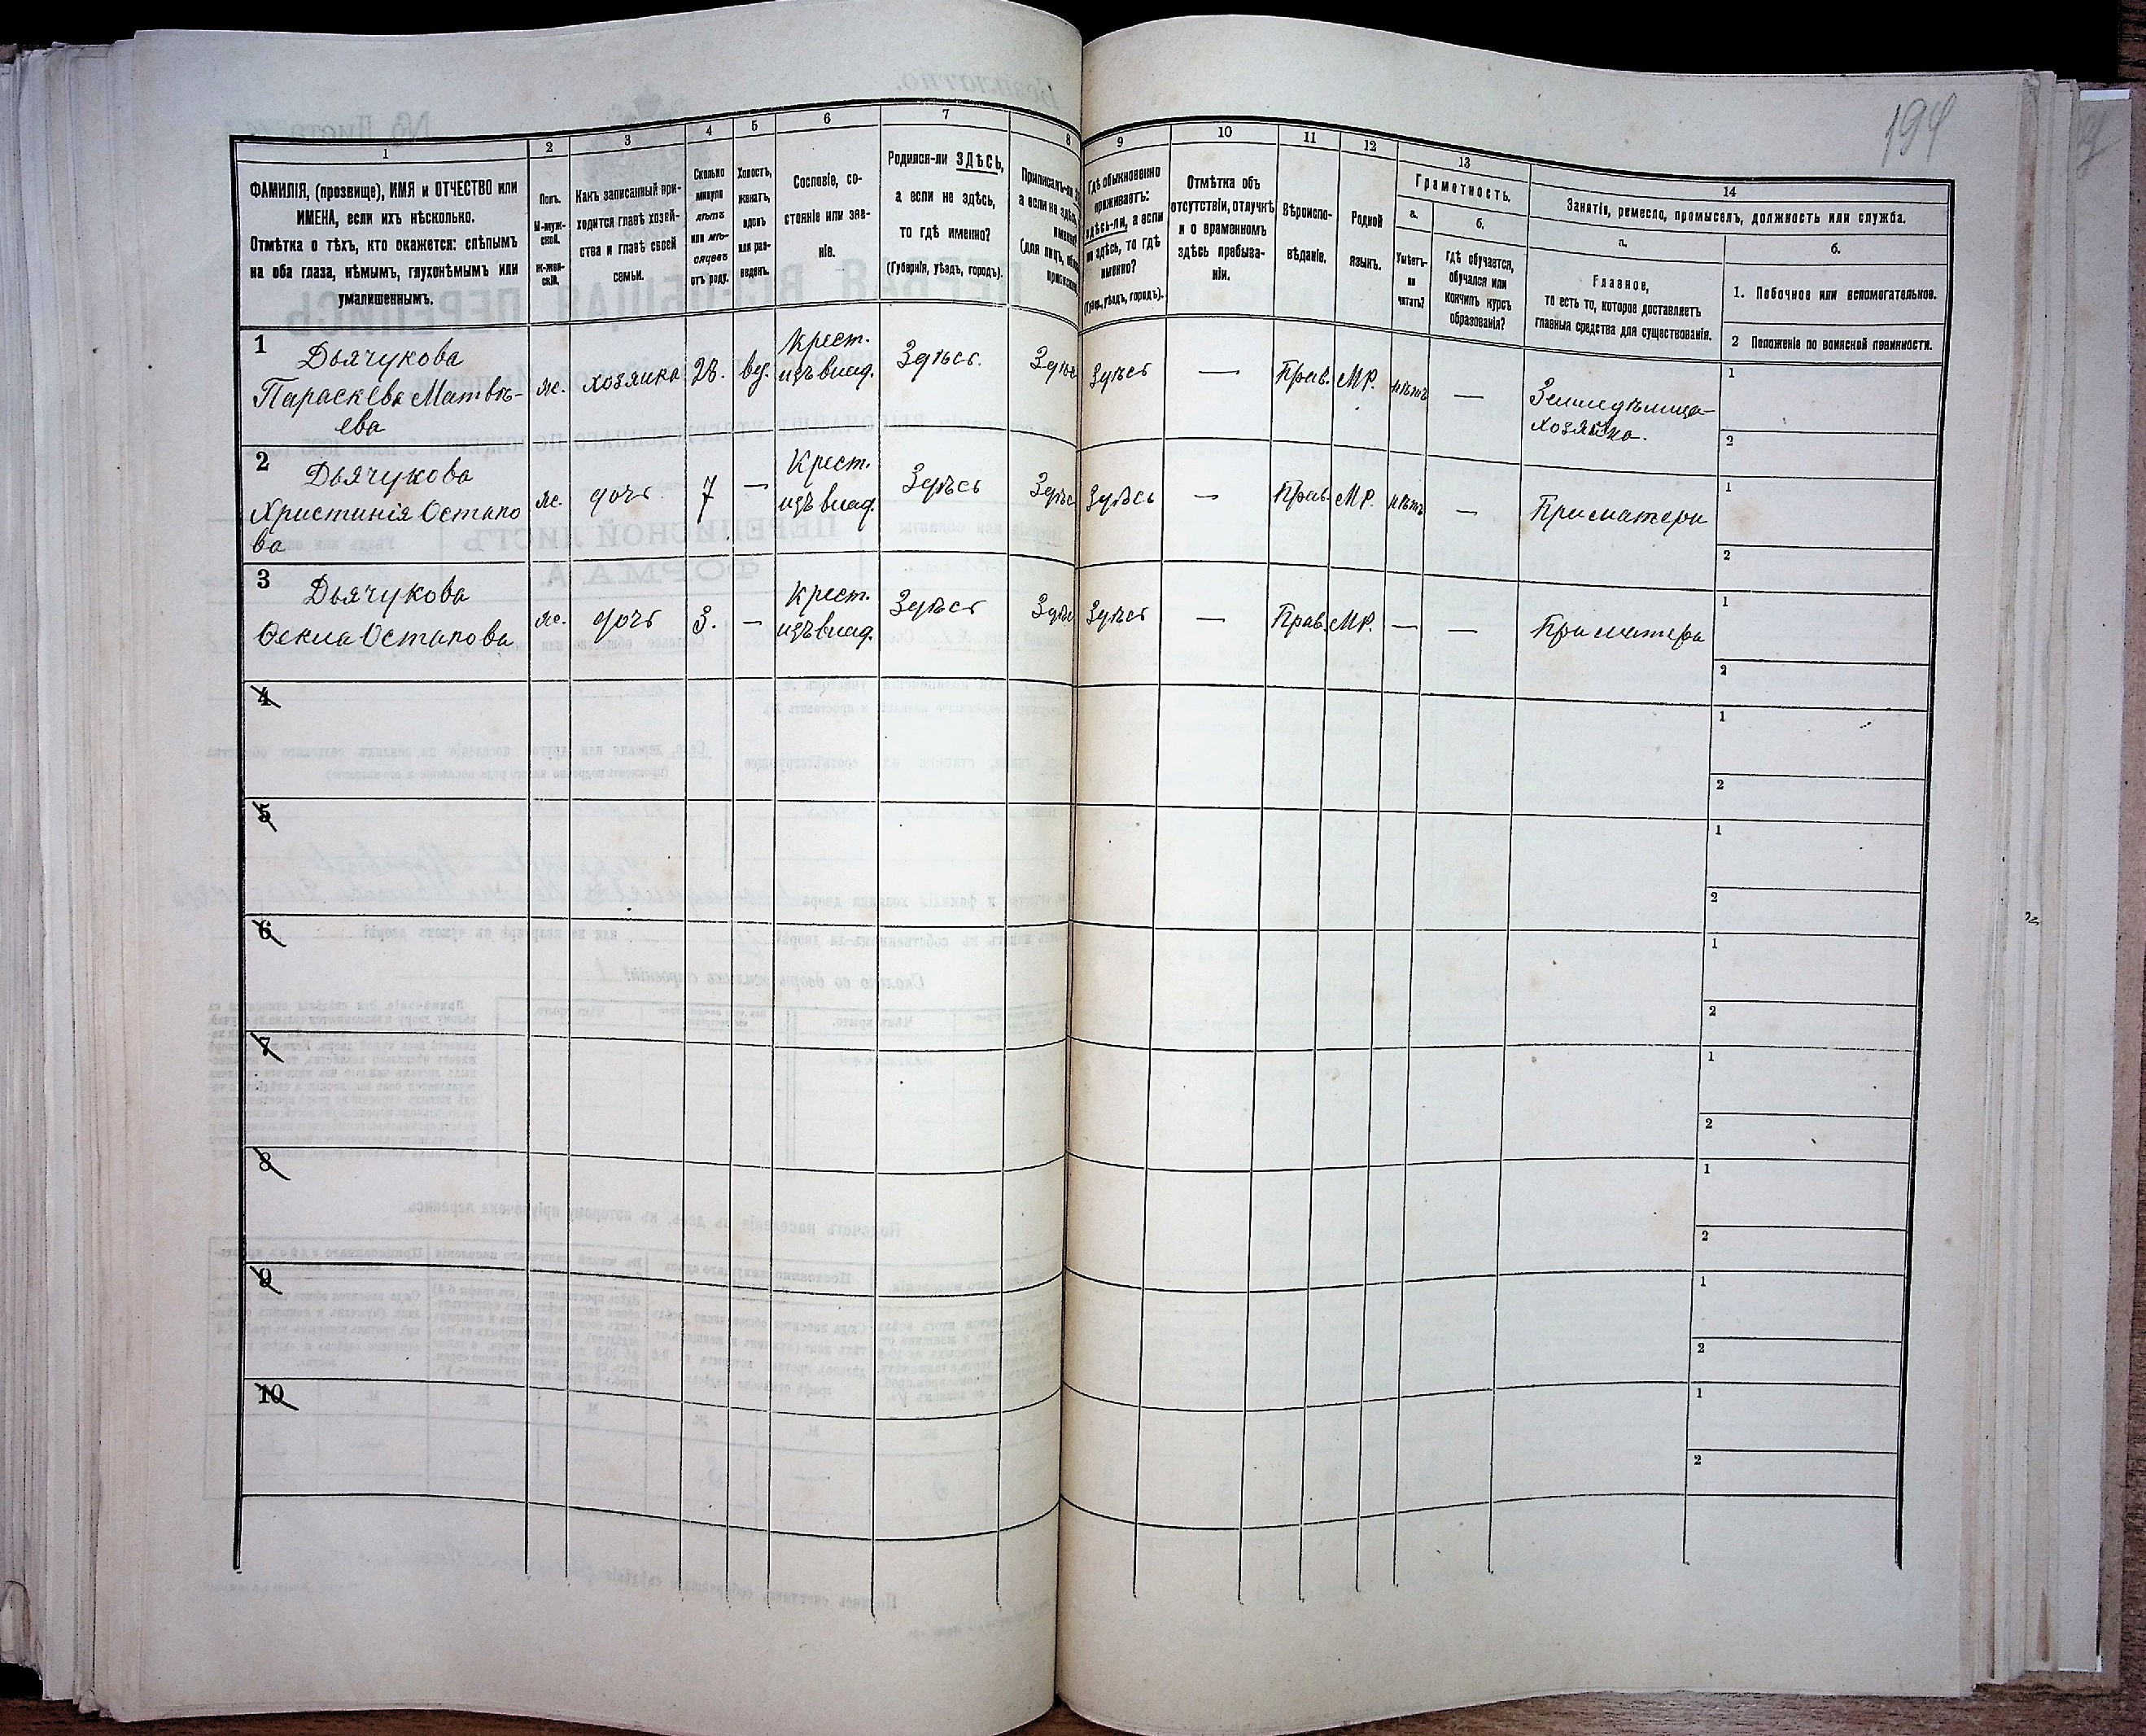 194
1
2
3
4
5
6
7
8
9
10
11
12
13
14
ФАМИЛІЯ, (прозвище), ИМЯ и ОТЧЕСТВО или
ИМЕНА, если ихъ нѣсколько.
Отмѣтка о тѣхъ, кто окажется: слѣпымъ
на оба глаза, нѣмымъ, глухонѣмымъ или
умалишеннымъ.
Полъ.
М-муж-
ской.
Ж-жен-
скій.
Какъ записанный при-
ходится главѣ хозяй-
ства и главѣ своей
семьи.
Сколько
минуло
лѣтъ
или мѣ-
сяцевъ
отъ роду.
Холостъ,
женатъ,
вдовъ
или раз-
веденъ.
Сословіе, со-
стояніе или зва-
ніе.
Родился-ли ЗДѢСЬ,
а если не здѣсь,
то гдѣ именно?
(Губернія, уѣздъ, городъ).
а если не здѣсь,
Гдѣ обыкновенно
проживаетъ:
здѣсь-ли, а если
не здѣсь, то гдѣ
именно?
Отмѣтка объ
отсутствіи, отлучкѣ
и о временномъ
здѣсь пребыва-
ніи.
Вѣроиспо-
вѣданіе.
Родной
языкъ.
Грамотность.
а.
Умѣетъ-
ли
читать?
б.
гдѣ обучается,
обучался или
кончилъ курсъ
образованія?
Занятіе, ремесло, промыселъ, должность или служба.
а.
Главное,
то есть то, которое доставляетъ
главныя средства для существованія.
б.
1. Побочное или вспомогательное.
2 Положеніе по воинской повинности.
1
Дьячукова
Параскева Матвѣ-
ева
ж. хозяйка 28. вд. крест. Здѣсь.
изъ влад.
Здѣсь — Прав. МР. нѣтъ — Земледѣлица-
хозяйка.
1
2
2
Дьячукова
Христинія Остапо
ва
ж. дочь 7 — Крест. Здѣсь
изъ влад.
Здѣсь — Прав. МР. нѣтъ — При матери
1
2
3
Дьячукова
Ѳекла Остапова
ж. дочь 3. — крест. Здѣсь
изъ влад.
Здѣсь — Прав. МР. — — При матери
1
2
4
1
2
5
1
2
6
1
2
7
1
2
8
1
2
9
1
2
10
1
2